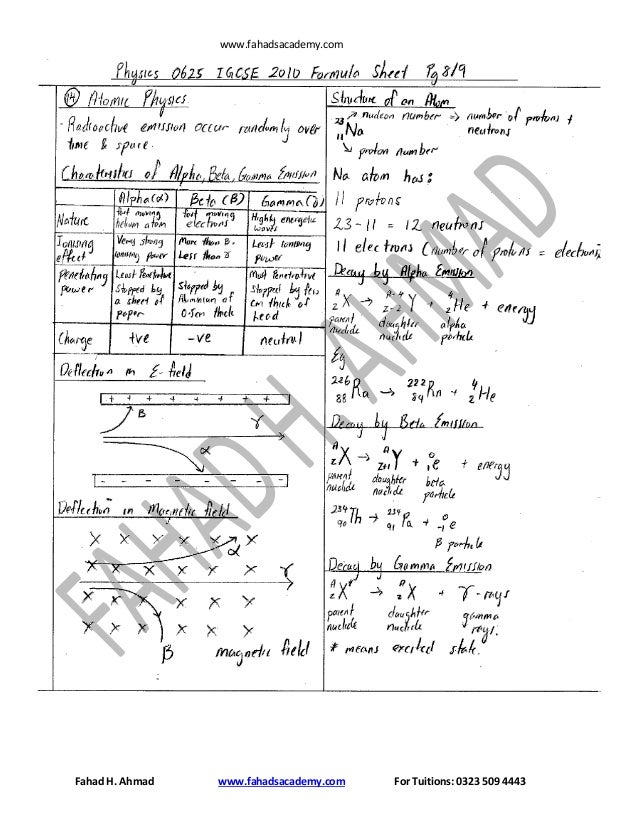 www.fahadsacademy.com
Physics 0625 IGCSE 2010 Formula Sheet Pg 8/9
14 Atomic Physics.
- Radioactive emission occur randomly over
time & space.
Charateristics of Alpha, Beta, Gamma Emission
Alpha(α) Beta (β) Gamma(γ)
Nature fast moving helium atom fast moving electrons Highly energetic waves
Ionising effect Very strong ionising power More than β. Less than γ Least ionising power
Penetrating power Least Penetrative Stopped by a sheet of paper Stopped by Aluminium of 0.5cm thick Most Penetrative Stopped by few cm thick of Lead
Charge +ve -ve neutral
Deflection in E-field
+ + + + + + + +
β
γ
α
- - - - - - - -
Deflection in Magnetic field
X X X X X X
α
X X X X X X γ
X X X X X X
X X X X X X
β magnetic field
Structure of an Atom
23 nucleon number => number of protons +
11 Na neutrons
proton number
Na atom has:
11 protons
23 - 11 = 12 neutrons
11 electrons (number of protons = electrons
Decay by Alpha Emission
A Z X → A-4 Z-2 Y + 4 2 He + energy
parent nuclide daughter nuclide alpha particle
Eg
226 88 Ra → 222 84 Rn + 4 2 He
Decay by Beta Emission
A Z X → A Z+1 Y + 0 -1 e + energy
parent nuclide daughter nuclide beta particle
234 90 Th → 234 91 Pa + 0 -1 e
β particle
Decay by Gamma Emission
A Z X* → A Z X + γ-rays
parent nuclide daughter nuclide gamma rays.
* means excited state.
FAHAD H. AHMAD
Fahad H. Ahmad www.fahadsacademy.com For Tuitions: 0323 509 4443